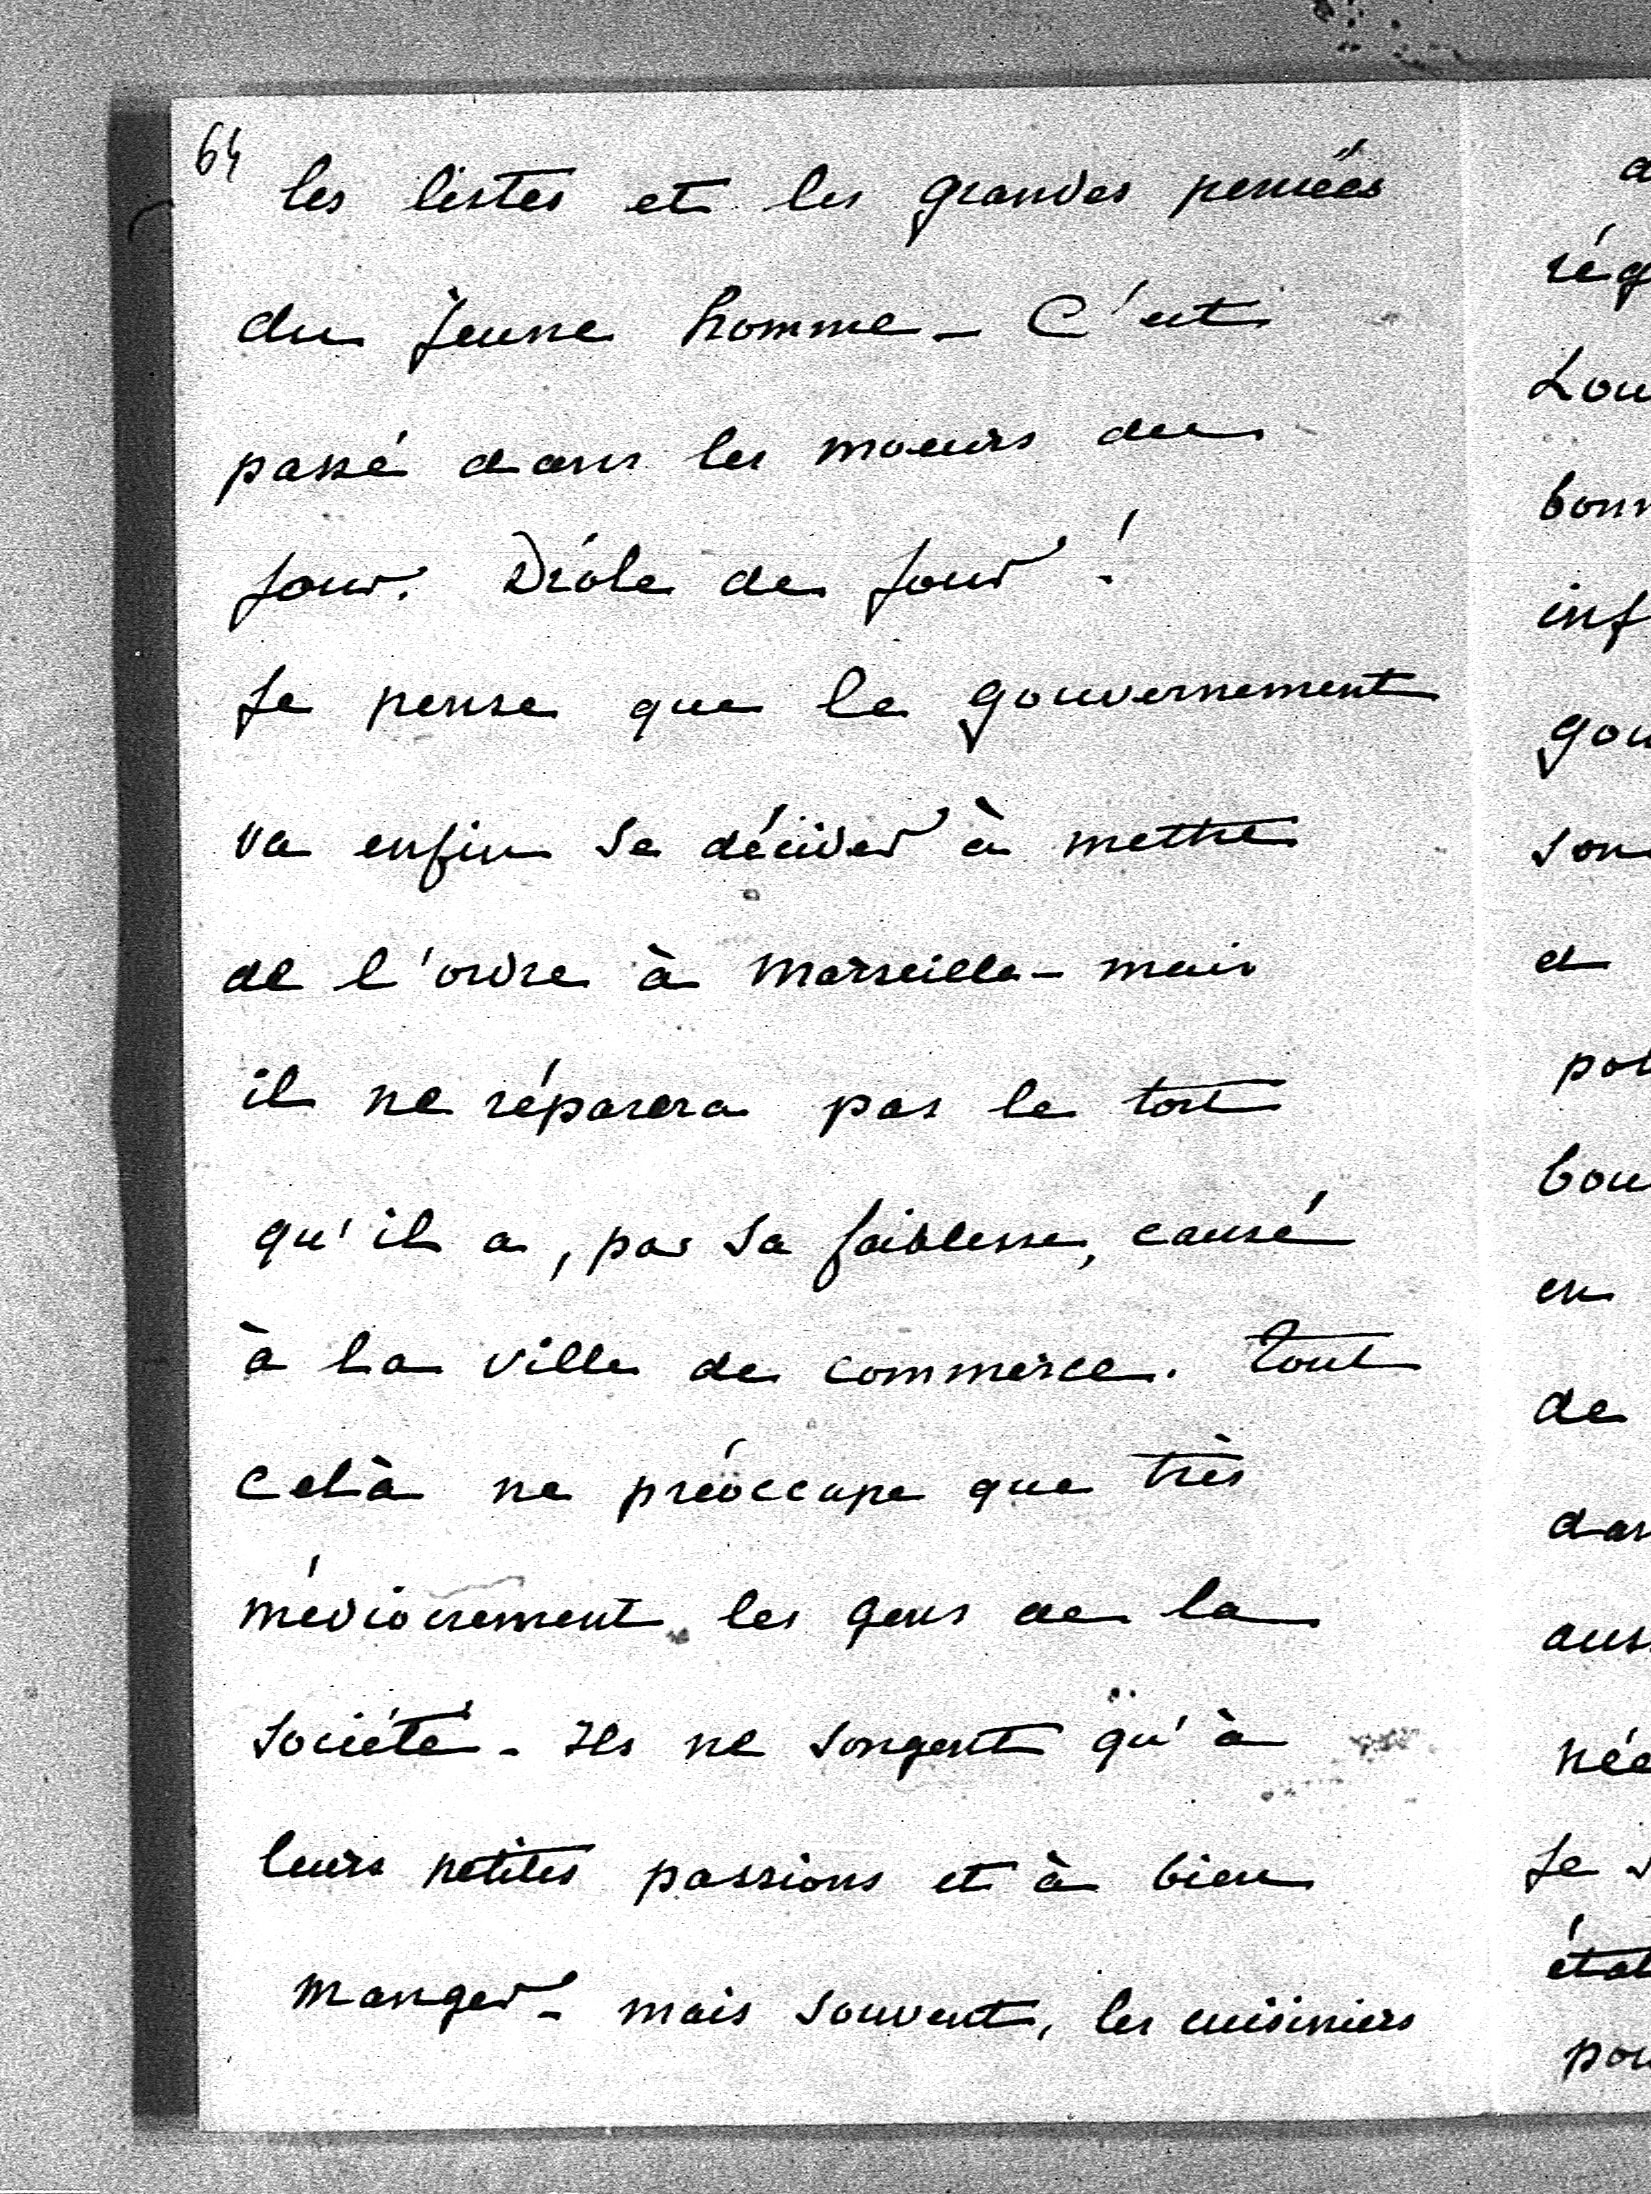 64
les listes et les grandes pensées
du jeune homme - C'est
passé dans les moeurs du
jour. Drôle de jour !
Je pense que le gouvernement
va enfin se décider à mettre
de l'ordre à Marseille - mais
il ne réparera pas le tort
qu'il a, par sa faiblesse, causé
à la ville de commerce. Tout
celà ne préoccupe que très
médiocrement les gens de la
société - Ils ne songent qu'à
leurs petites passions et à bien
manger - mais souvent, les cuisiniers
d
rég
Lou
bonn
inf
gou
son
d
pol
bou
en
de
dan
auss
née
Je s
état
pou